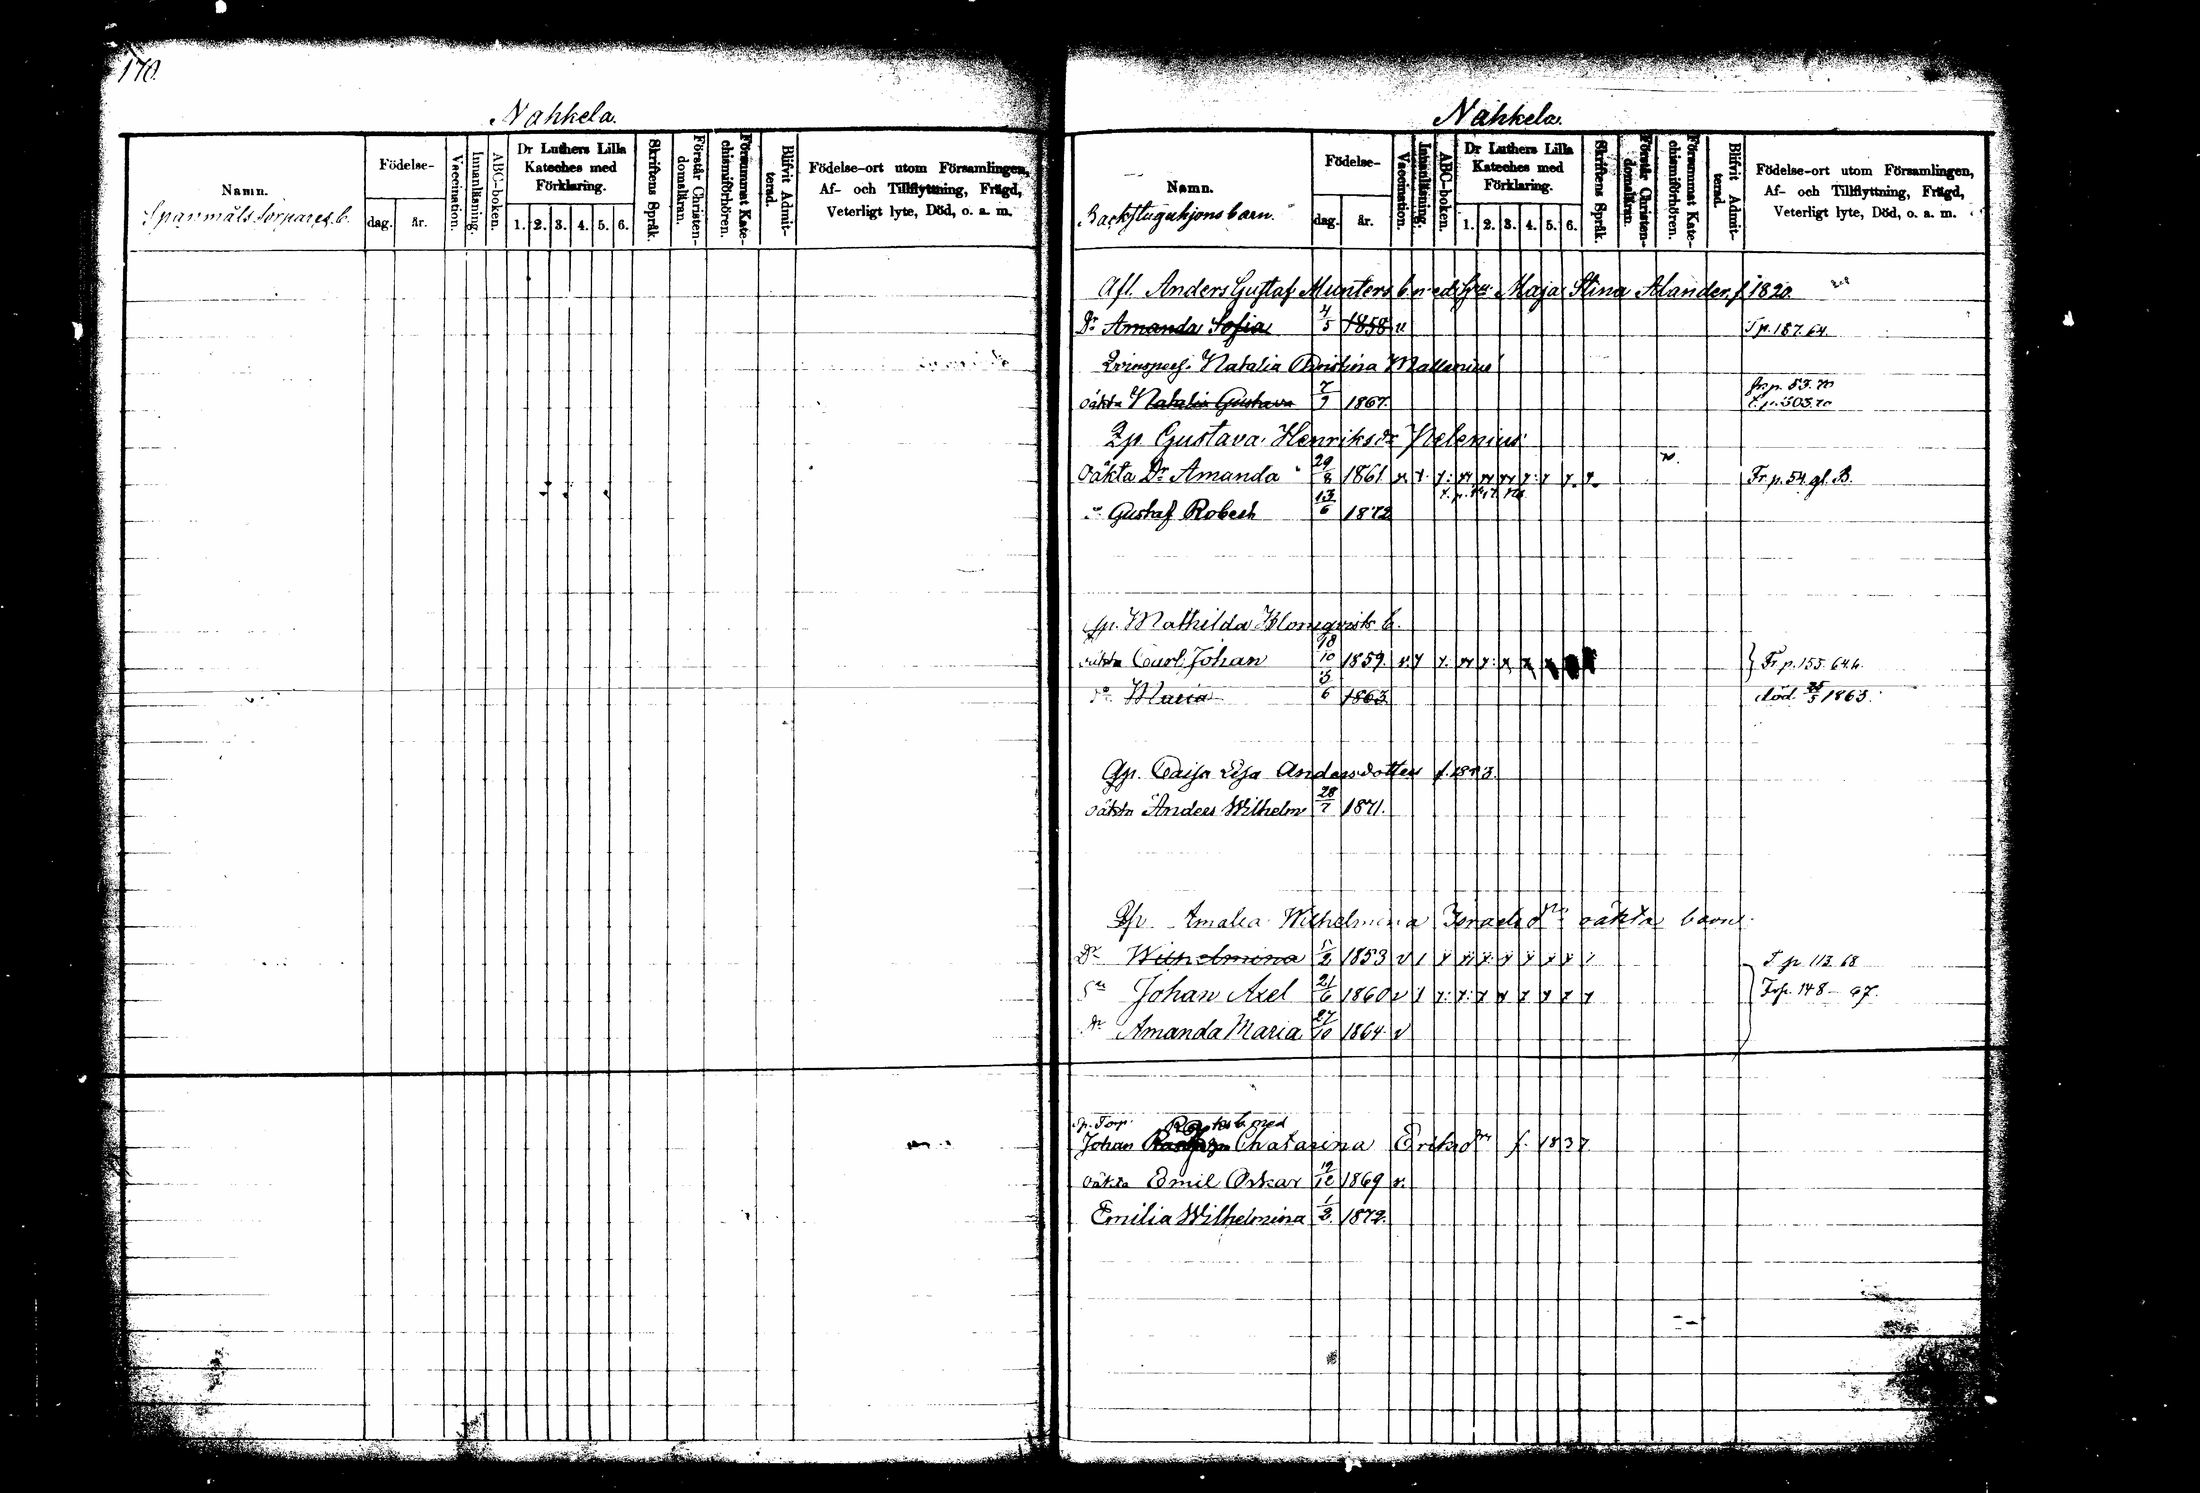 170.
Nahkela.
Namn.
Spanmåls Torpares b.
Födelse-
dag. år.
Vaccination.
Innanläsning.
ABC-boken.
Dr Luthers Lilla Kateches med Förklaring.
1. 2. 3. 4. 5. 6.
Skriftens Språk.
Förstår Christendomsläran.
Försummat Katechismiförhören.
Blifvit Admitterad.
Födelse-ort utom Församlingen,
Af- och Tillflyttning, Frägd,
Veterligt lyte, Död, o. a. m.
Nahkela.
Namn.
Backstuguhjons barn.
Födelse-
dag. år.
Vaccination.
Innanläsning.
ABC-boken.
Dr Luthers Lilla Kateches med Förklaring.
1. 2. 3. 4. 5. 6.
Skriftens Språk.
Förstår Christendomsläran.
Försummat Katechismiförhören.
Blifvit Admitterad.
Födelse-ort utom Församlingen,
Af- och Tillflyttning, Frägd,
Veterligt lyte, Död, o. a. m.
Afl. Anders Gustaf Munters b. med Maja Stina Alander f. 1820.
Dr Amanda Sofia 4/5 1858 v T p. 187. 64.
Natalia Christina
oäkta Natalia Gustava 7/9 1867. fr. p. 53. 70
t. p. 303. 70
Gustava Henriksdr
oäkta Dr Amanda 29/8 1861 Fr. p. 54. gl. B.
Gustaf Robert 13/6 1872
Mathilda Blomqvists b.
oäkta Carl Johan 18/10 1859. Fr p. 155. 64
Maria 3/6 1863 död 25/5 1863.
Caisa Lisa Andersdotter
oäkta Anders Wilhelm 28/7 1871.
Amalia Wilhelmina Israelsdrs oäkta barn.
Dr Wilhelmina 5/2 1853 T p 113 68
Sn Johan Axel 21/6 1860 Fr p. 148 - 67.
Dr Amanda Maria 27/10 1864 v
Johan b. med Chatarina Eriksdr f. 1837
oäkta Emil Oskar 19/12 1869 v.
Emilia Wilhelmina 1/2 1872.